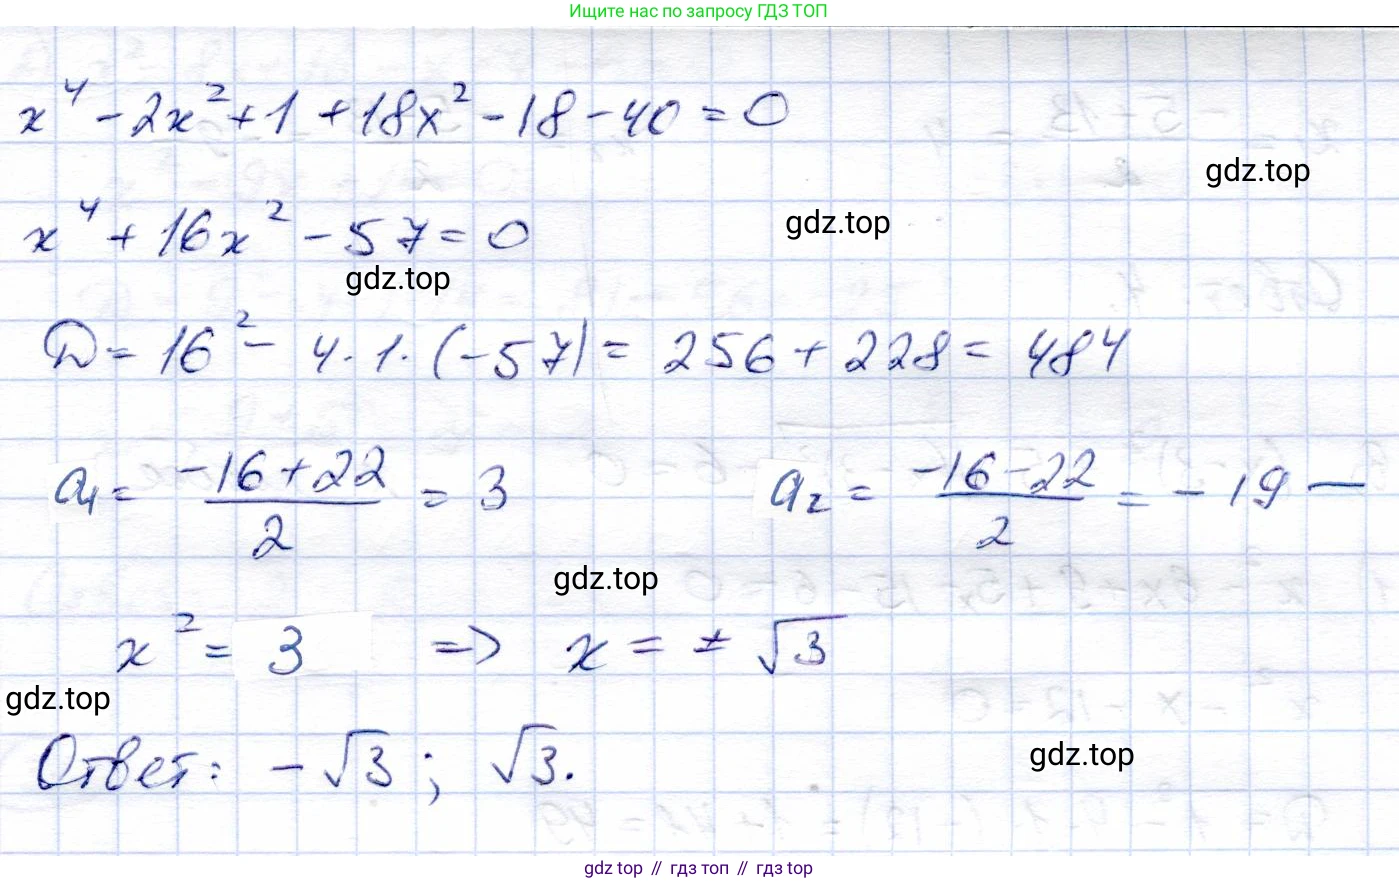 Ищите нас по запросу ГДЗ ТОП
x⁴ - 2x² + 1 + 18x² - 18 - 40 = 0
gdz.top
x⁴ + 16x² - 57 = 0
gdz.top
gdz.top
D = 16² - 4 · 1 · (-57) = 256 + 228 = 484
a₁ = (-16 + 22)/2 = 3     a₂ = (-16 - 22)/2 = -19 —
gdz.top
x² = 3 => x = ± √3
gdz.top
Ответ: -√3; √3.
gdz.top
gdz top // гдз топ // gdz.top